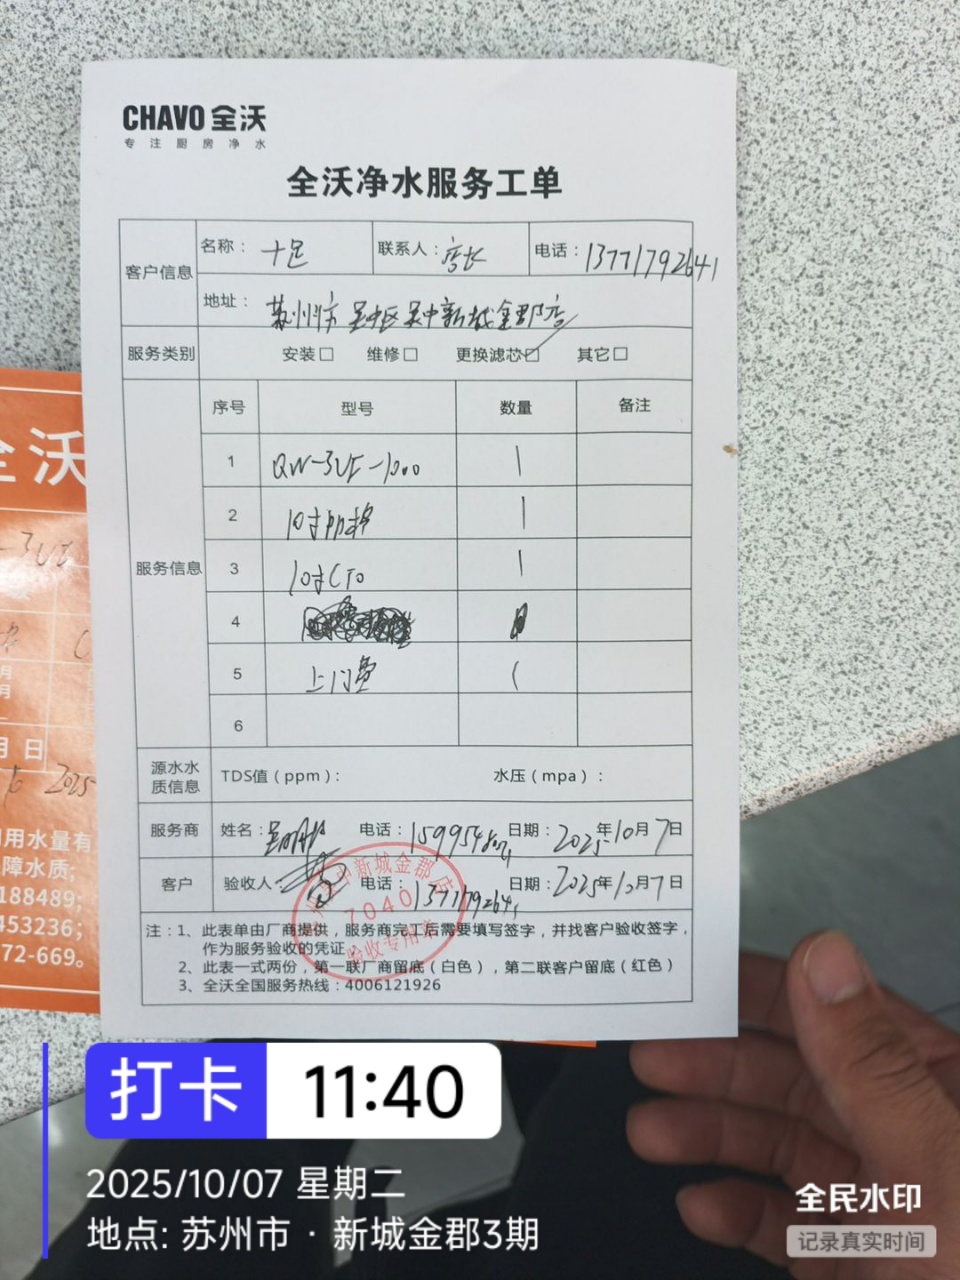 CHAVO 全沃
专注厨房净水
全沃净水服务工单
客户信息 名称： 十足 联系人： 店长 电话： 13771792641
地址： 苏州市吴中区吴中新城金郡店
服务类别 安装□ 维修□ 更换滤芯□ 其它□
服务信息 序号 型号 数量 备注
1 QW-3UF-1000 1
2 10寸阻垢 1
3 10寸CTO 1
4
5 上门费 1
6
源水水质信息 TDS值（ppm）： 水压（mpa）：
服务商 姓名： 电话： 日期： 2025年10月7日
客户 验收人 电话： 13771792641 日期： 2025年10月7日
新城金郡店
7040
验收专用章
注：1、此表单由厂商提供，服务商完工后需要填写签字，并找客户验收签字，
作为服务验收的凭证。
2、此表一式两份，第一联厂商留底（白色），第二联客户留底（红色）
3、全沃全国服务热线：4006121926
全沃
-3UF
月
月
月 日
2025
用水量有
障水质；
188489；
453236；
72-669。
打卡 11:40
2025/10/07 星期二
地点: 苏州市 · 新城金郡3期
全民水印
记录真实时间